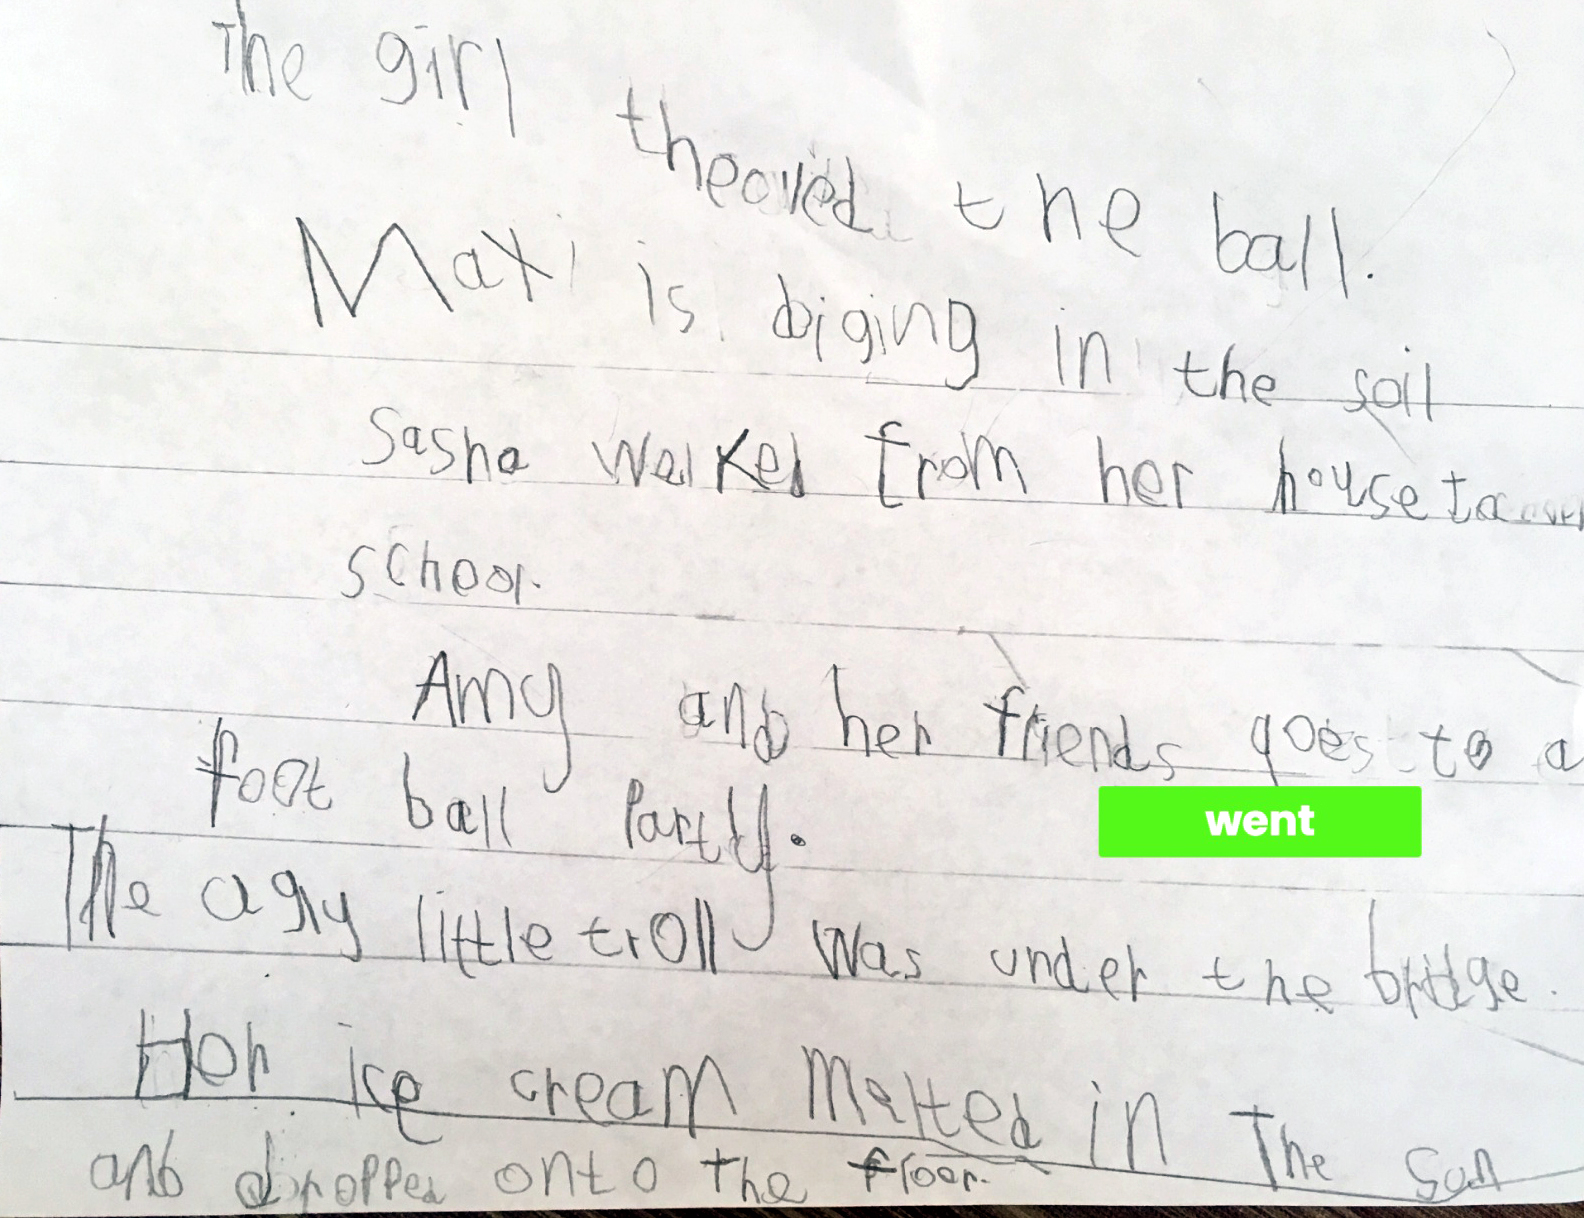 The girl theowed the ball.
Maxi is diging in the soil
Sasha walked from her house to
school.
Amy and her friends goes to a
foot ball Party.
went
The ugly little troll was under the bridge.
Her ice cream Melted in The sun
and dropped onto the floor.